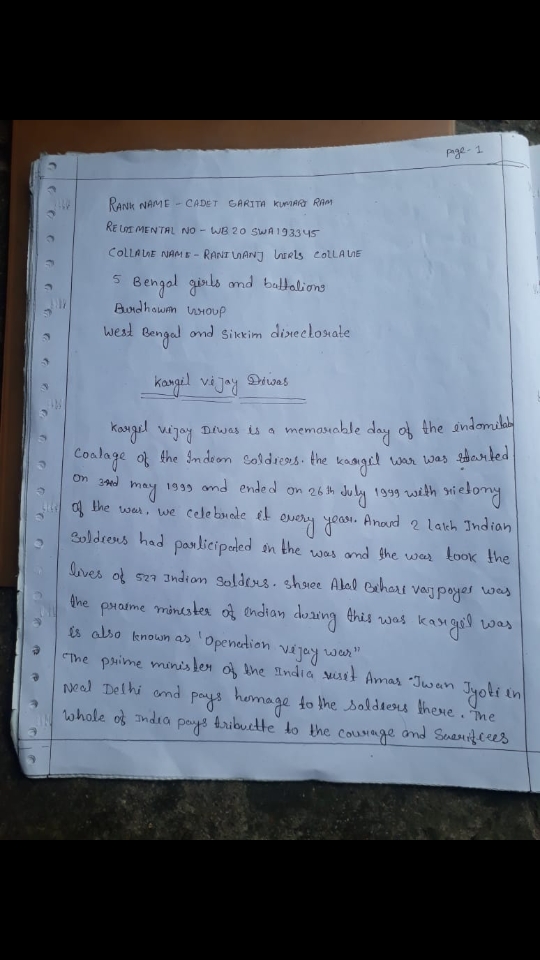 page-1
RANK NAME - CADET SARITA KUMARI RAM
REGIMENTAL NO - WB20 SWA193345
COLLAGE NAME - RANIGANJ GIRLS COLLAGE
5 Bengal girls and battalions
Burdhawan Group
West Bengal and Sikkim directorate
Kargil Vijay Diwas
Kargil Vijay Diwas is a memorable day of the indomilab
Coalage of the Indian Soldiers. the kargil war was started
on 3rd may 1999 and ended on 26th July 1999 with victony
of the war. we celebrate it every year. Anard 2 lakh Indian
Soldiers had participated in the was and the war took the
lives of 527 Indian Solders. Shree Atal Bihari vajpoyee was
the praime minister of indian during this was kargil was
is also known as "Openation vijay war"
The prime minister of the India visit Amar Jwan Jyoti in
Neal Delhi and pays homage to the soldiers there. The
whole of India pays tributte to the courage and Sacrifices